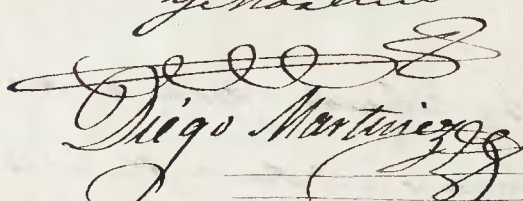 Diégo Martinez